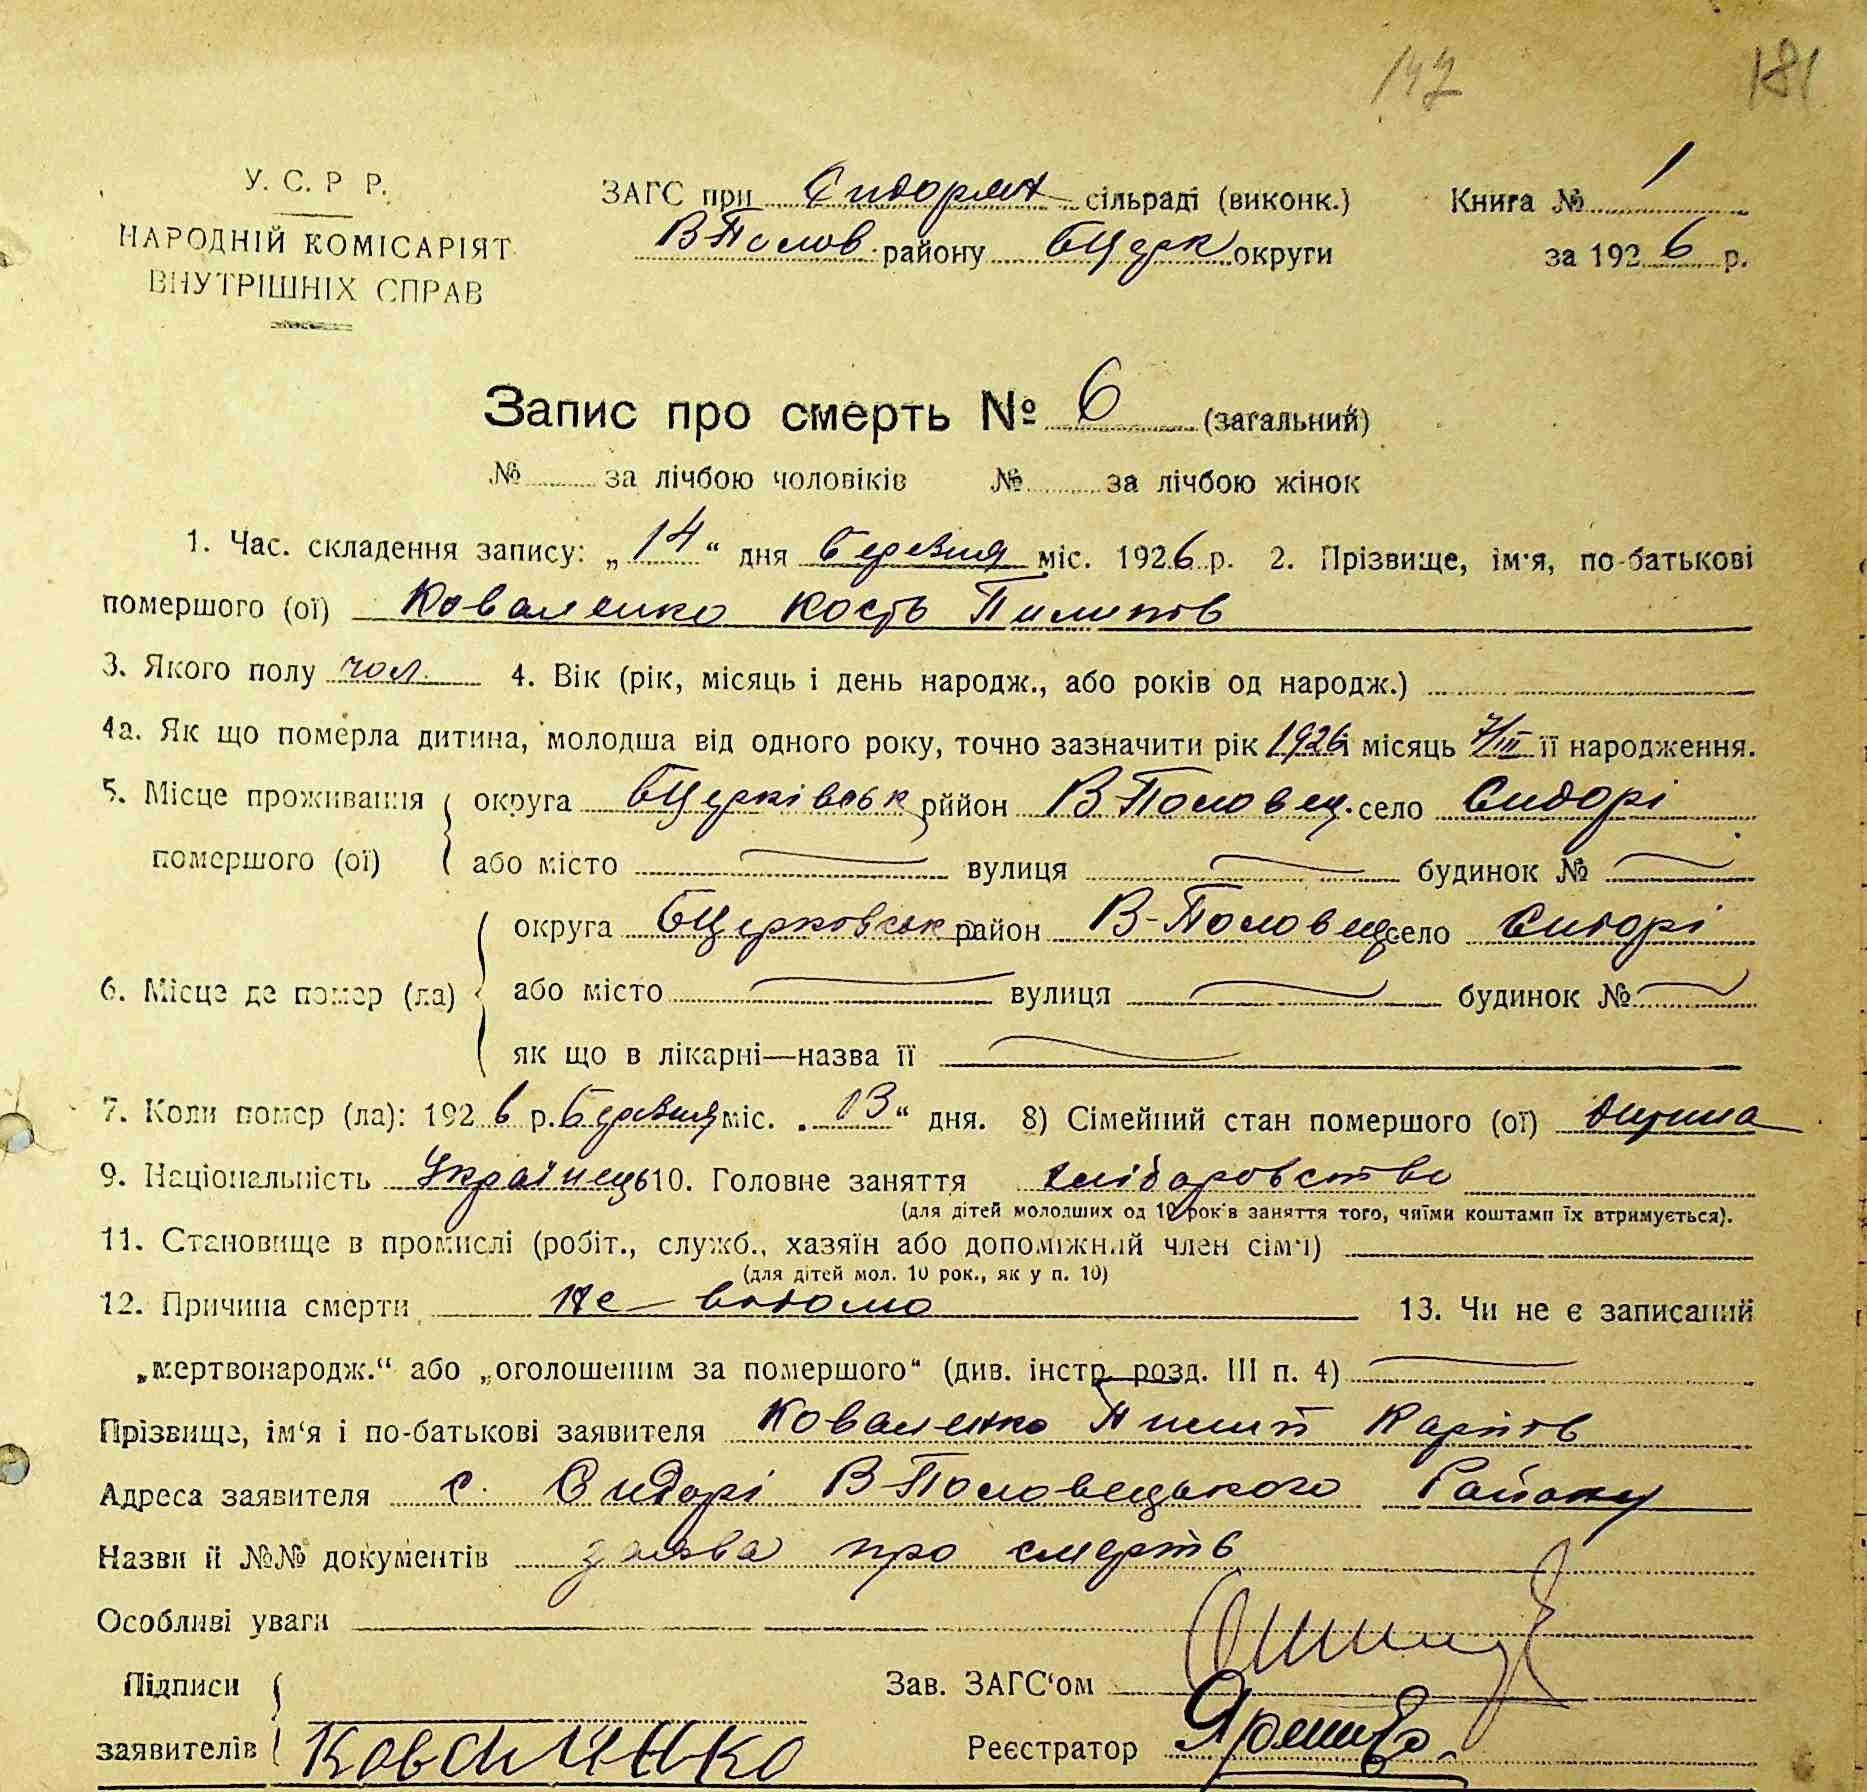 147 181
У. С. Р Р.
НАРОДНІЙ КОМІСАРІЯТ
ВНУТРІШНІХ СПРАВ
ЗАГС при Сидорян сільраді (виконк.) Книга № 1
В Полов. району БЦерк округи за 1926 р.
Запис про смерть № 6 (загальний)
№ за лічбою чоловіків № за лічбою жінок
1. Час. складення запису: „14“ дня березня міс. 1926 р. 2. Прізвище, ім'я, по-батькові
помершого (ої) Коваленко Кость Пилипов
3. Якого полу чол. 4. Вік (рік, місяць і день народж., або років од народж.)
4а. Як що померла дитина, молодша від одного року, точно зазначити рік 1926 і місяць 7/III її народження.
5. Місце проживання помершого (ої) округа БЦерківськ рййон В-Половец. село Сидорі
або місто вулиця будинок №
6. Місце де помер (ла) округа БЦерковськ район В-Половец село Сидорі
або місто вулиця будинок №
як що в лікарні—назва її
7. Коли помер (ла): 1926 р. Березня міс. „13“ дня. 8) Сімейний стан помершого (ої) дитина
9. Національність Українець 10. Головне заняття хліборобство
(для дітей молодших од 10 рок'в заняття того, чиїми коштами їх втримується).
11. Становище в промислі (робіт., служб., хазяїн або допоміжний член сім'ї)
(для дітей мол. 10 рок., як у п. 10)
12. Причина смерти не відомо 13. Чи не є записаний
„мертвонародж.“ або „оголошеним за помершого“ (див. інстр. розд. III п. 4)
Прізвище, ім'я і по-батькові заявителя Коваленко Пилип Карпов
Адреса заявителя с. Сидорі В-Половецького Району
Назви й №№ документів заява про смерть
Особливі уваги
Підписи заявителів Коваленко
Зав. ЗАГС'ом
Реєстратор